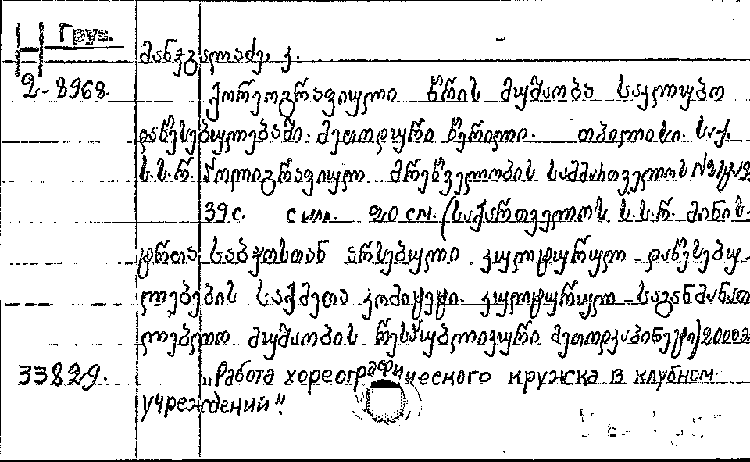 Груз.
2-8968.
მანჯგალაძე, ჯ.
ქორეოგრაფიული წრის მუშაობა საკლუბო
დაწესებულებაში. მეთოდური წერილი. თბილისი. საქ.
ს.ს.რ. პოლიგრაფიულ მრეწველობის სამმართველოს
39 с. с илл. 20 см. (საქართველოს ს.ს.რ. მინის-
ტრთა საბჭოსთან არსებული კულტურულ დაწესებუ-
ლებების საქმეთა კომიტეტი. კულტურულ საგანმანათ
ლებლო მუშაობის რესპუბლიკური მეთოდკაბინეტი) 2000 э
33829.
„Работа хореографического кружка в клубном
учреждений".